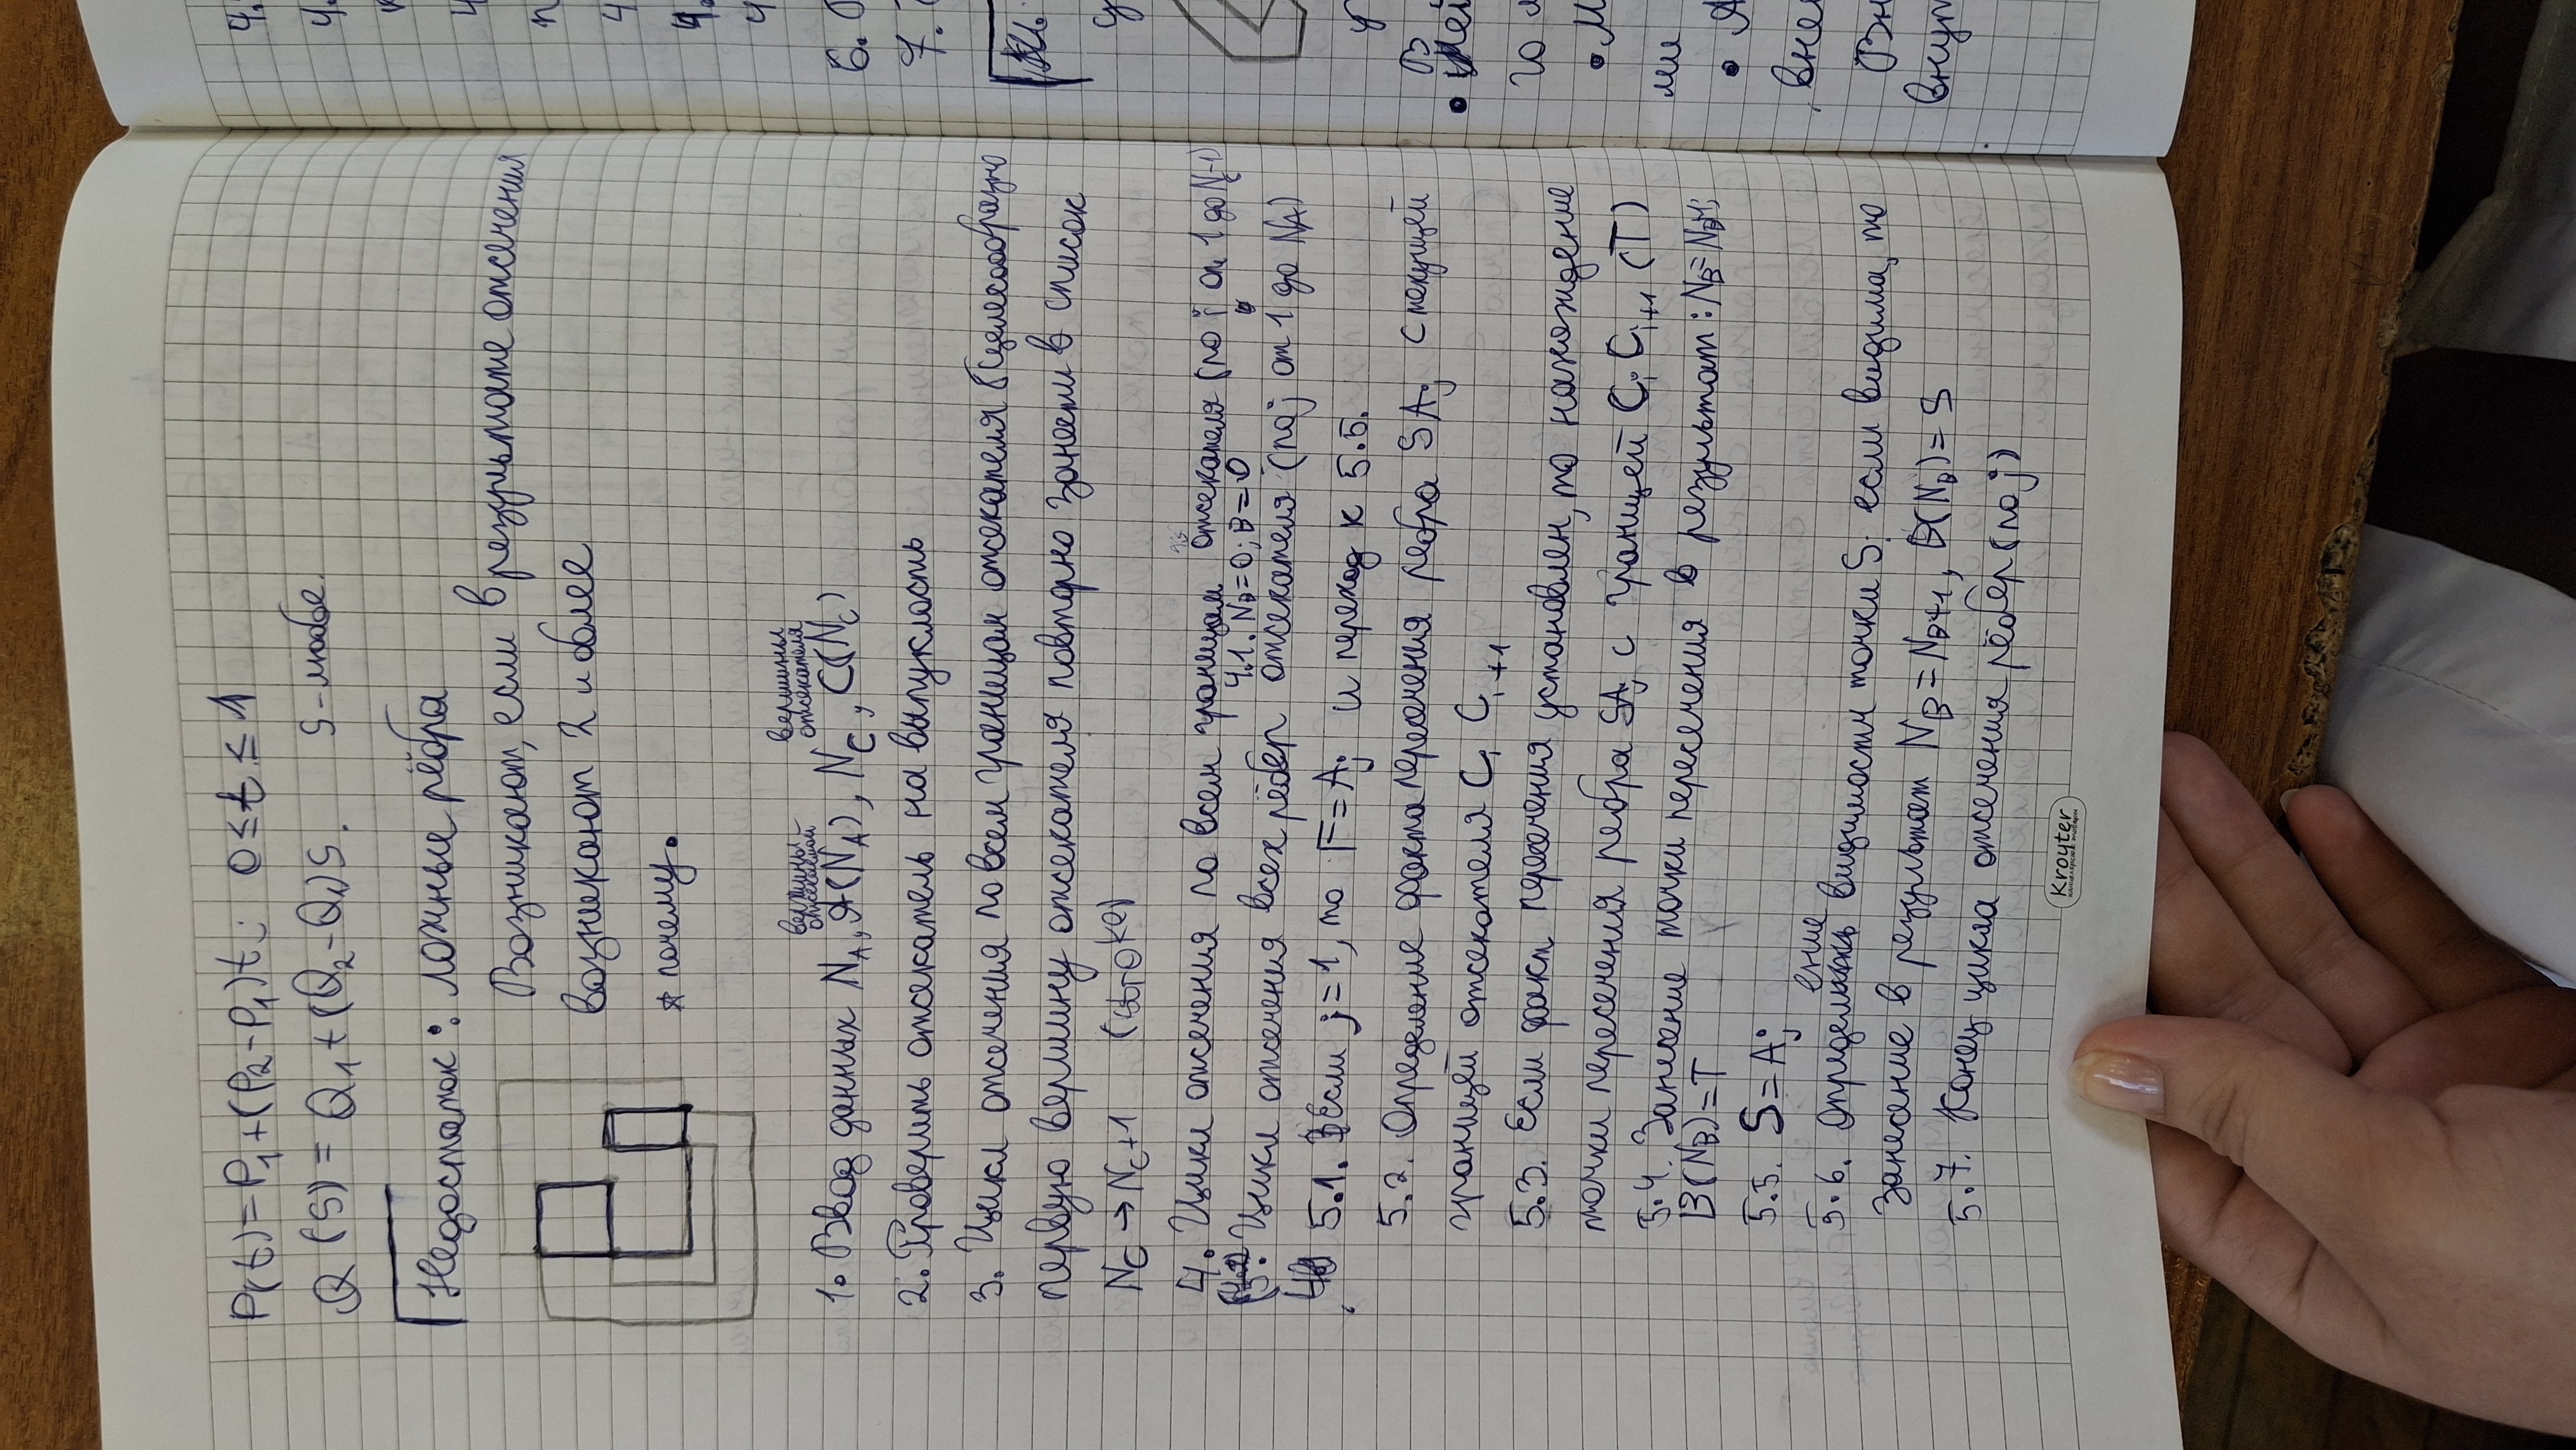 P(t)=P₁+(P₂-P₁)t; 0≤t≤1
Q(S)=Q₁+(Q₂-Q₁)S. S-любое.
Недостаток: ложные рёбра
Возникают, если в результате отсечения
возникают 2 и более
* почему.
вершины отсекаемой
вершины отсекателя
1. Ввод данных N_A, A(N_A), N_C, C(N_C)
2. Проверить отсекатель на выпуклость
3. Цикл отсечения по всем границам отсекателя целесообразно
первую вершину отсекателя повторно занести в список
N_C → N_C+1 (stroke)
4. Цикл отсечения по всем границам отсекателя (по i от 1 до N_C-1)
4.1. N_B=0; B=0
5. Цикл отсечения всех рёбер отсекателя (по j от 1 до N_A)
5.1. Если j=1, то F=A_j и переход к 5.5.
5.2. Определение факта пересечения ребра SA_j с текущей
границей отсекателя C_i C_i+1
5.3. Если факт пересечения установлен, то нахождение
точки пересечения ребра SA_j с границей C_i C_i+1 (T)
5.4. Занесение точки пересечения в результат: N_B=N_B+1;
B(N_B)=T
5.5. S=A_j
5.6. Определение видимости точки S; если видима, то
занесение в результат N_B=N_B+1, B(N_B)=S
5.7. Конец цикла отсечения рёбер (по j)
Kroyter
канцелярские товары
4.
4.
4
4
4.
4
6.
7.
В
го
• М
ми
• А
вне
Вн
внут